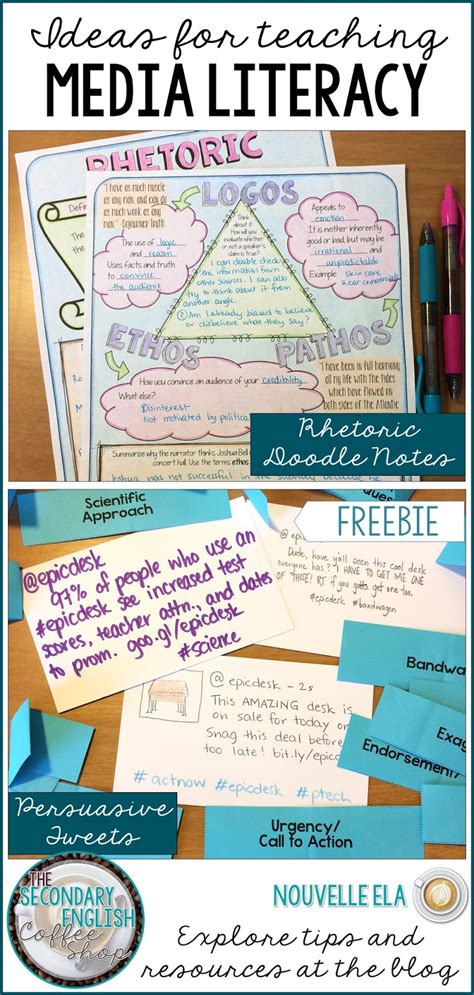 Ideas for teaching
MEDIA LITERACY
RHETORIC
LOGOS
"I have as much muscle
as any man, and can do
as much work as any
man." -Sojourner Truth
Think
about it:
How will you
evaluate whether
or not a speaker's
claim is true?
I can double check
the information from
other sources. I can also
try to think about it from
another angle.
Am I already biased to believe
or disbelieve what they say?
The use of logic
and reason
Uses facts and truth
to convince
the audience
Appeals to
emotion
It is neither inherently
good or bad, but may be
irrational and
unpredictable
Example: skin care
& car commercials
ETHOS
PATHOS
How you convince an audience of your credibility
What else?
Disinterest
Not motivated by political
"I have been in full harmony
all my life with the tides
which have flowed on
both sides of the Atlantic
Summarize why the narrator thinks Joshua Bell
concert hall. Use the terms ethos
Joshua was not successful in the subway because
Rhetoric
Doodle Notes
Scientific
Approach
FREEBIE
@epicdesk
97% of people who use an
#epicdesk see increased test
scores, teacher attn., and dates
to prom. goo.gl/epicdesk
#science
Dude, have y'all seen this cool desk
everyone has? I HAVE TO GET ME ONE
OF THESE! RT if you gotta get one too.
#epicdesk #bandwagen
@epicdesk - 2s
This AMAZING desk is
on sale for today on
Snag this deal before
too late! bit.ly/epicd
#actnow #epicdesk #ptech
Bandwa
Exag
Endorsement/
Urgency/
Call to Action
Persuasive
Tweets
THE
SECONDARY
ENGLISH
Coffee
Shop
NOUVELLE ELA
Explore tips and
resources at the blog